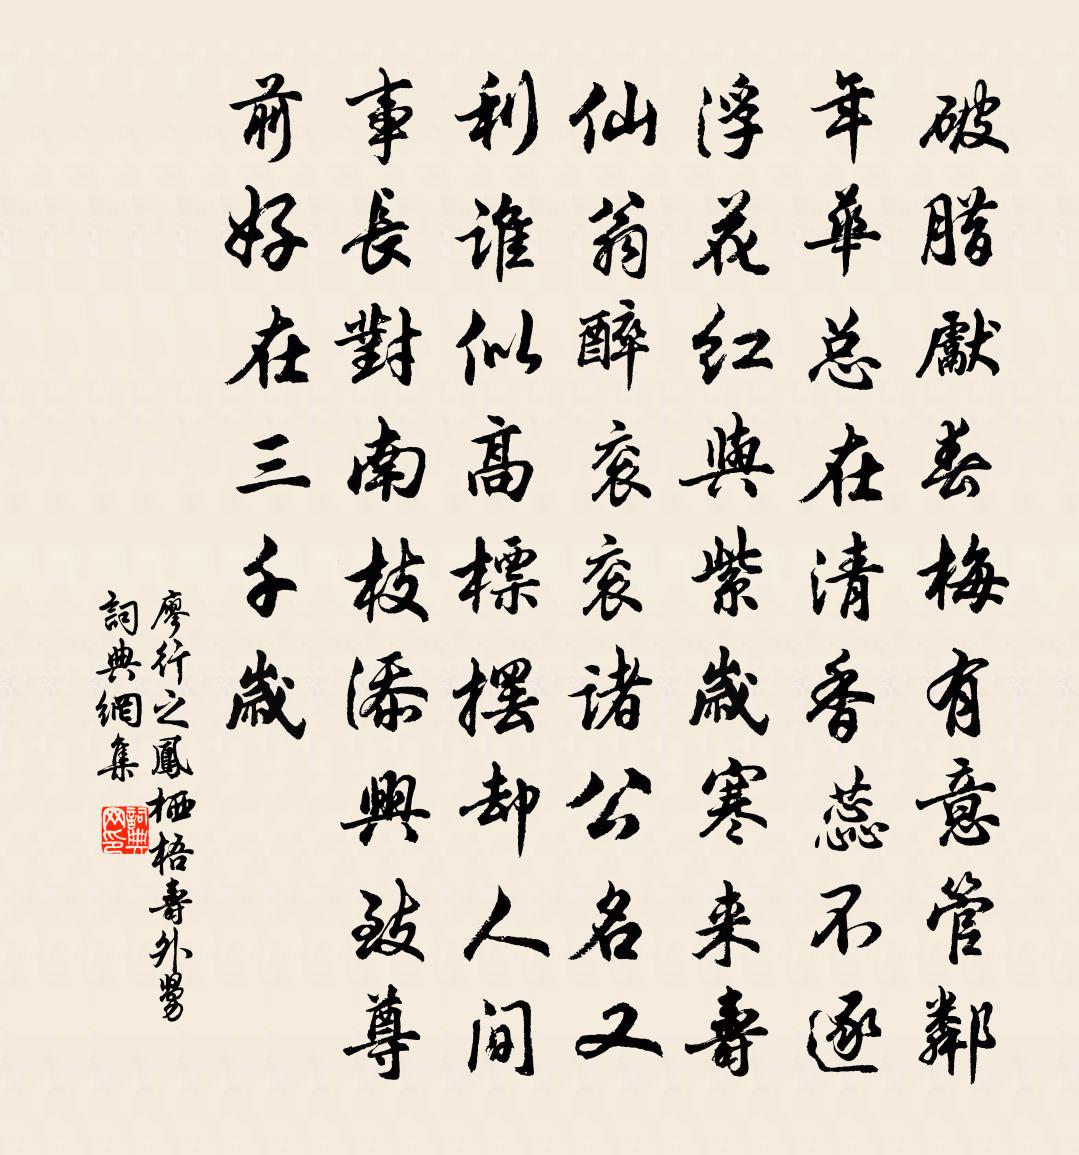 破腊獻春梅有意管鄰
年華总在清香蕊不逐
浮花红與紫歲寒来壽
仙翁醉衮衮诸公名又
利谁似高標擺却人间
事長對南枝添興致尊
前好在三千歲
廖行之鳳栖梧壽外舅
詞典網集
詞典网印